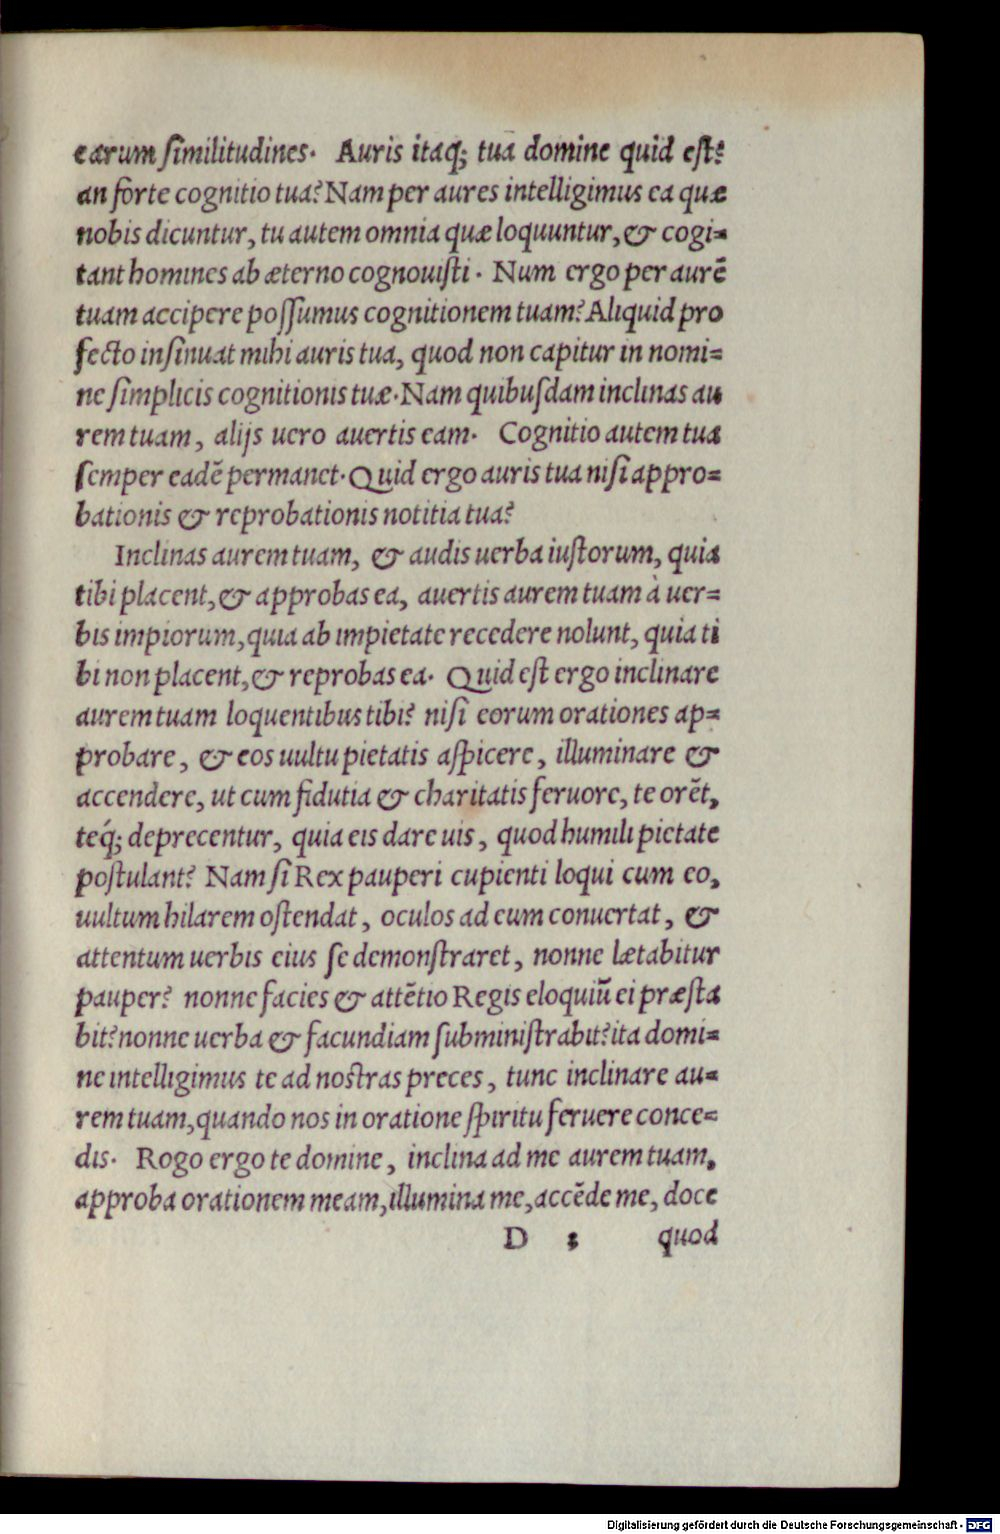 earum similitudines. Auris itaq; tua domine quid est?
an forte cognitio tua? Nam per aures intelligimus ea quæ
nobis dicuntur, tu autem omnia quæ loquuntur, & cogi=
tant homines ab æterno cognouisti. Num ergo per aurē
tuam accipere possumus cognitionem tuam? Aliquid pro
fecto insinuat mihi auris tua, quod non capitur in nomi=
ne simplicis cognitionis tuæ. Nam quibusdam inclinas au
rem tuam, alijs uero auertis eam. Cognitio autem tua
semper eadē permanet. Quid ergo auris tua nisi appro=
bationis & reprobationis notitia tua?
Inclinas aurem tuam, & audis uerba iustorum, quia
tibi placent, & approbas ea, auertis aurem tuam à uer=
bis impiorum, quia ab impietate recedere nolunt, quia ti
bi non placent, & reprobas ea. Quid est ergo inclinare
aurem tuam loquentibus tibi? nisi eorum orationes ap=
probare, & eos uultu pietatis aspicere, illuminare &
accendere, ut cum fidutia & charitatis feruore, te orēt,
teq́; deprecentur, quia eis dare uis, quod humili pietate
postulant? Nam si Rex pauperi cupienti loqui cum eo,
uultum hilarem ostendat, oculos ad eum conuertat, &
attentum uerbis eius se demonstraret, nonne lætabitur
pauper? nonne facies & attētio Regis eloquiū ei præsta
bit? nonne uerba & facundiam subministrabit? ita domi=
ne intelligimus te ad nostras preces, tunc inclinare au=
rem tuam, quando nos in oratione spiritu feruere conce=
dis. Rogo ergo te domine, inclina ad me aurem tuam,
approba orationem meam, illumina me, accēde me, doce
D quod
Digitalisierung gefördert durch die Deutsche Forschungsgemeinschaft - DFG